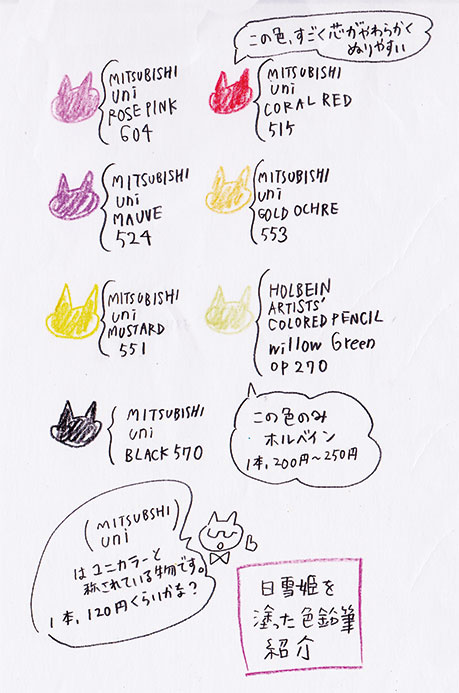 この色、すごく芯がやわらかく
ぬりやすい
MITSUBISHI
uni
ROSE PINK
604
MITSUBISHI
uni
CORAL RED
515
MITSUBISHI
uni
MAUVE
524
MITSUBISHI
uni
GOLD OCHRE
553
MITSUBISHI
uni
MUSTARD
551
HOLBEIN
ARTISTS'
COLORED PENCIL
Willow Green
OP270
MITSUBISHI
uni
BLACK 570
この色のみ
ホルベイン
1本,200円〜250円
(MITSUBSHI
uni)
はユニカラーと
称されている物です。
1本,120円くらいかな?
白雪姫を
塗った色鉛筆
紹介